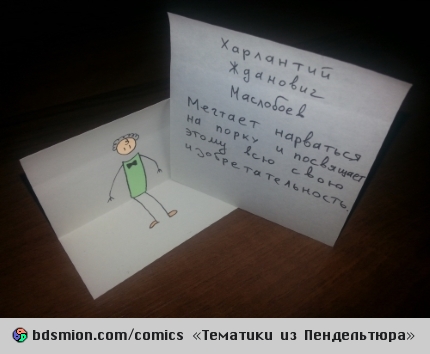 Харлантий
Жданович
Маслобоев
Мечтает нарваться
на порку и посвящает
этому всю свою
изобретательность.
bdsmion.com/comics «Тематики из Пендельтюра»